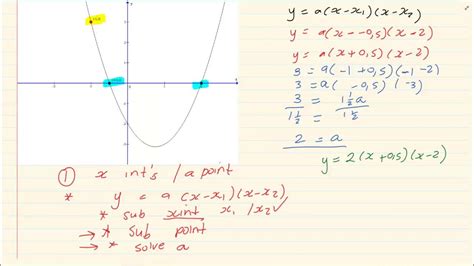 y = a(x-x₁)(x-x₂)
y = a(x--0,5)(x-2)
y = a(x+0,5)(x-2)
3 = a(-1+0,5)(-1-2)
3 = a( -0,5)( -3)
3 = 1½a
1½ 1½
2 = a
y = 2(x+0,5)(x-2)
① x int's / a point
* y = a (x-x₁)(x-x₂)
* sub xint x₁ / x₂ ✓
→ * sub point
→ * solve a